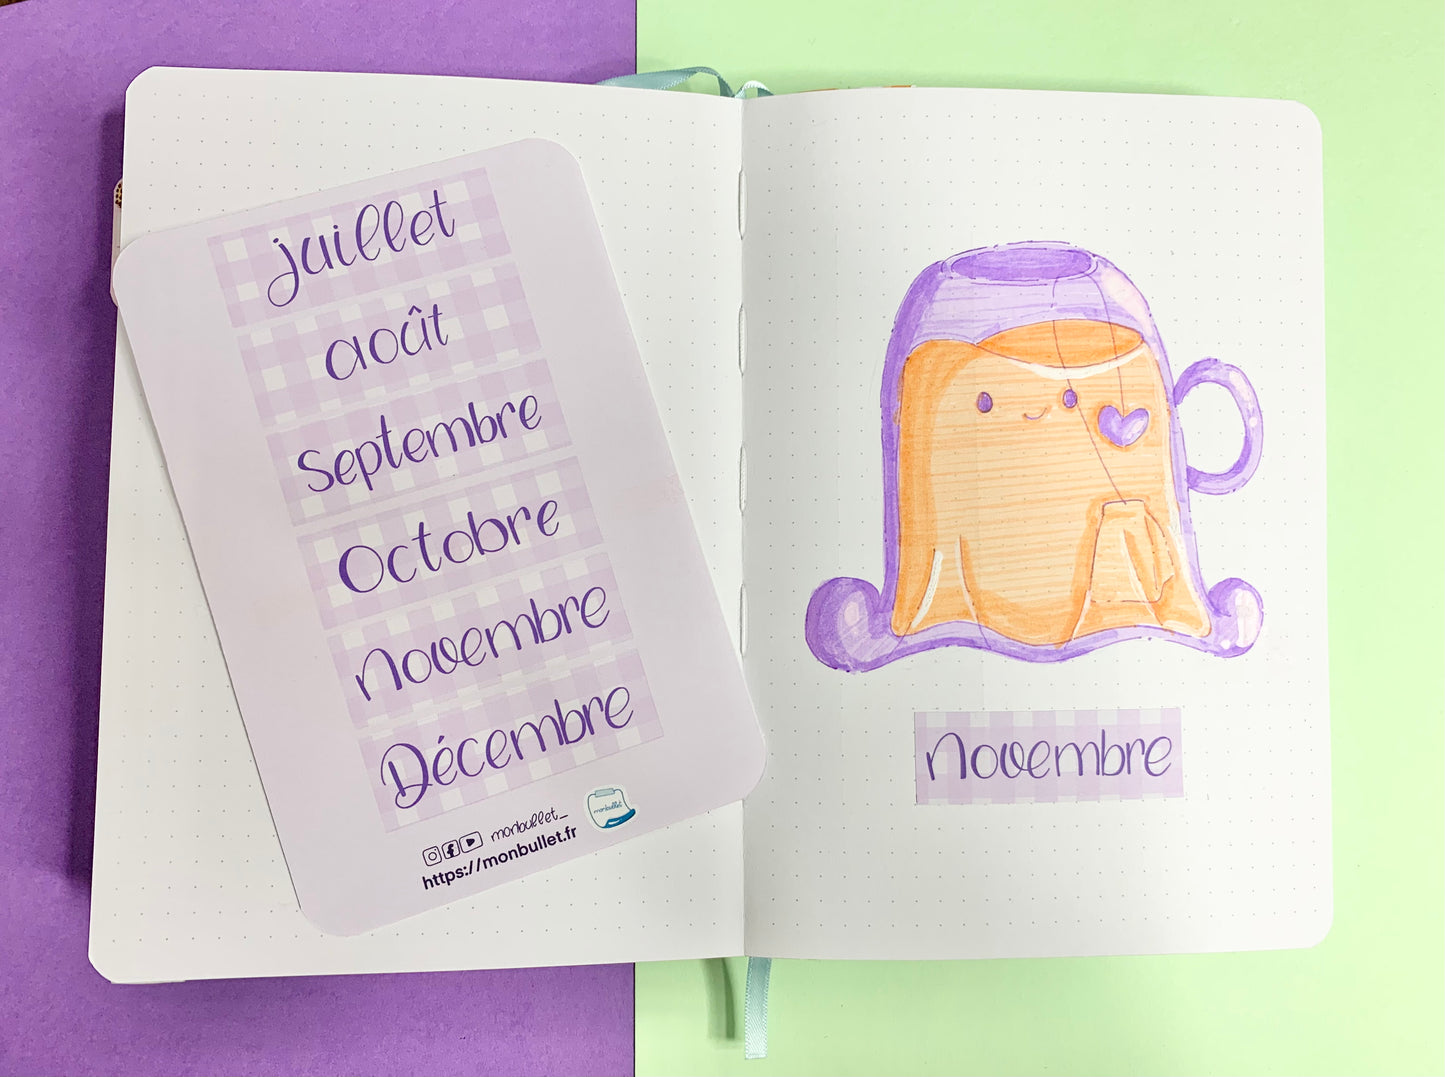 juillet
août
Septembre
Octobre
Novembre
Décembre
monbullet_
https://monbullet.fr
monbullet
Novembre